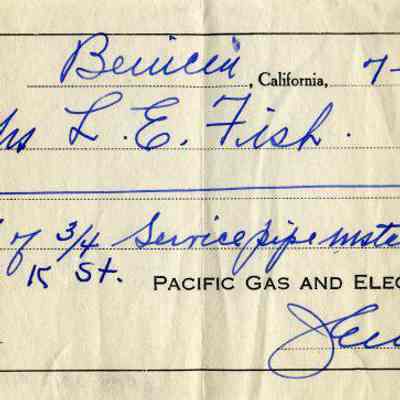 Benicia, California, 7-
L. E. Fish.
of 3/4 Service pipe
K St. PACIFIC GAS AND ELEC